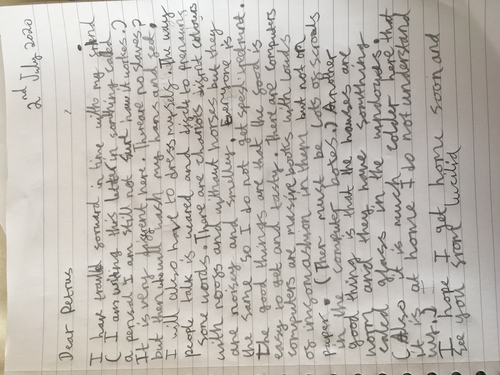 2nd July 2020
Dear Petrus
I have travld forward in time with my friend
( I am writing this letter in something called
a pensil I am still not sure how it wakes.)
It is very different here. There are no slaves?
but then who will wash my hair and feet.
I will also have to dress myself. The way
people talk is weared and difelt to prenouns
some words. There are chariots
with roogs and without horses but they
are noisy and smelly. Everyone is
the same so I do not get spesil
the good things are that the food is
easy to get and tasty. There are computers
computers are masive books with loads
of insormashum in them but not on
paper. (There must be lots of scrouls
in the computer boxes.) Another
good thing is that the houses are
worm and they have something
called glass in the windowds.
(Also it is much colder here that
it is at home I do not understand
why.)
I hope I get home soon and
see you srom lucilid